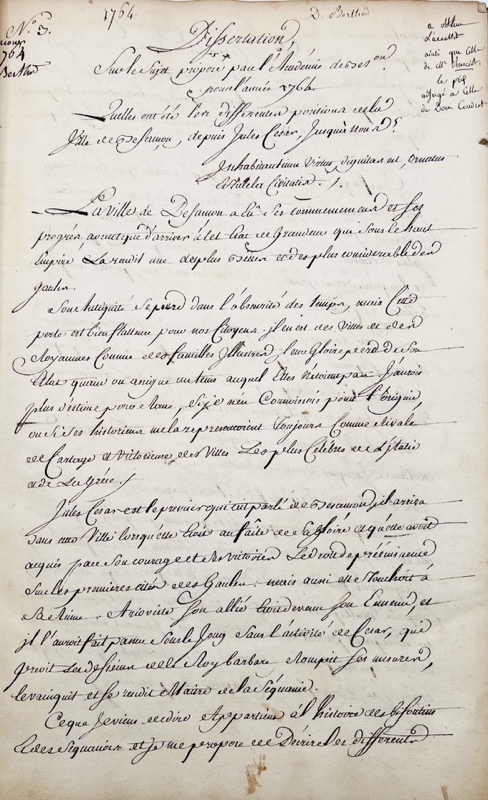 N.° 3.
1764
D. Berthod
1764
Berthod
a obtenu
L'accessit
ainsi que celle
de Mr
le prix
adjugé a celle
de Dom Coudret
Dissertation,
Sur le sujet proposé par l'Académie de Beson
pour l'année 1764
Quelles ont été les differentes positions de la
Ville de Besançon, depuis Jules Cesar, jusqu'à nous
Inhabitantium Virtus, dignitas est, ornatus
Civitatis.
La Ville de Besançon a eu ses commencemens et ses
progrès avant que d'arriver à cet etat de Grandeur qui sous le haut
Empire La rendit une des plus belles et des plus considerables des
gaules.
Son Antiquité se perd dans l'obscurité des temps, mais Cette
perte est bien flatteuse pour nos Citoyens. il en est des Villes et des
Royaumes Comme des familles Illustres, leur Gloire perd de son
Eclat quand on assigne un tems auquel Elles n'étoient pas J'aurois
plus d'estime pour Rome, si je n'en Connoissois point l'origine
ou si ses historiens me la representoient Toujours Comme Rivale
de Cartage et victorieuse des Villes Les plus Celebres de L'Italie
et de La Grece.
Jules Cesar est le premier qui ait parlé de Besançon, il arriva
dans cette Ville lorsqu'elle étoit au faîte de la gloire et qu'elle avoit
acquis par son courage et ses victoires Le droit de prééminence
sur les premieres cités des Gaules: mais aussi elle Touchoit à
sa Ruine. Arioviste son allié étoit devenu son Ennemi, et
il l'auroit fait passer sous le Joug sans l'arrivée de Cesar, qui
previt Les desseins de ce Roy barbare Rompit ses mesures,
le vainquit et se rendit Maitre de la Sequanie.
Ce que je viens de dire Appartient à l'histoire des bisontins
et des Sequanois et je me propose de Décrire les differentes